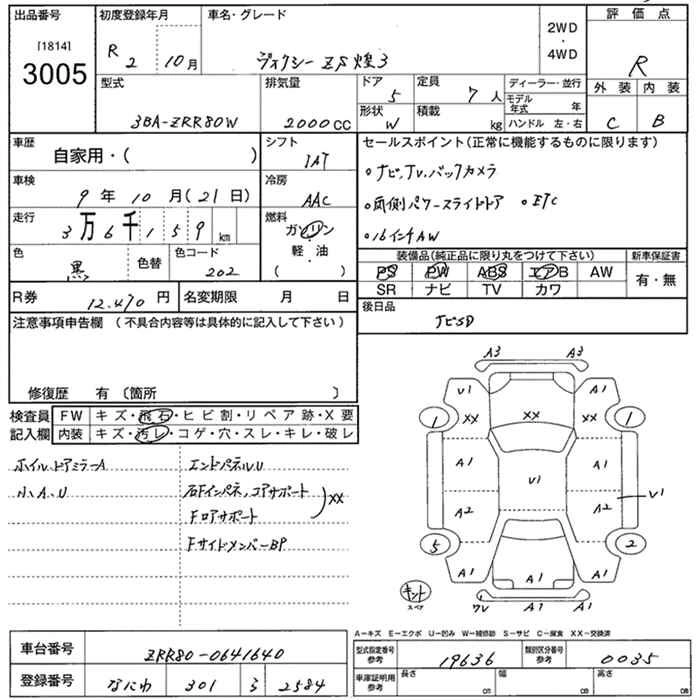 出品番号 初度登録年月 車名・グレード 2WD ・ 4WD 評価点
[1814] 3005 R 2 10月 ヴォクシー ZS 煌3 R
型式 排気量 ドア 5 定員 7人 ディーラー・並行 外装 内装
モデル年式 年
3BA-ZRR80W 2000CC 形状 W 積載 kg ハンドル 左・右 C B
車歴 自家用・( ) シフト IAT セールスポイント(正常に機能するものに限ります)
・ナビ、TV、バックカメラ
車検 9年10月(21日) 冷房 AAC
・両側パワースライドドア ・ETC
走行 3万6千159km 燃料 ガソリン 軽・油 ( )
・16インチAW
色 黒 色替 色コード 202
装備品(純正品に限り丸をつけて下さい) 新車保証書
PS PW ABS エアB AW 有・無
SR ナビ TV カワ
R券 12.470円 名変期限 月 日
後日品 ナビSD
注意事項申告欄(不具合内容等は具体的に記入して下さい)
修復歴 有〔箇所 〕
検査員記入欄 FW キズ・飛石・ヒビ割・リペア跡・X要
内装 キズ・汚レ・コゲ・穴・スレ・キレ・破レ
ホイル、ドアミラーA エンドパネルU
小、A、U 右Fインパネ、コアサポート
Fロアサポート XX
FサイドメンバーBP
A3 A3
U1 A1
XX XX XX
1 1
A1 U1 A1
A2 A2 U1
5 2
A1 A1 A1
キント スペア
A1
A－キズ E－エクボ U－凹み W－補修跡 S－サビ C－腐食 XX－交換済
車台番号 ZRR80-0641640
型式指定番号 参考 19636 類別区分番号 参考 0035
登録番号 なにわ 301 る 2584
車庫証明用 参考 長さ cm 幅 cm 高さ cm